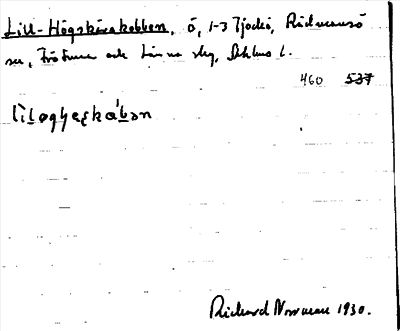 Lill-Högskärskobben, ö, 1-3 Tjockö, Rådmansö
sn, Frötuna och Länna skg, Sthlms l.
460 537
Richard Norrman 1930.